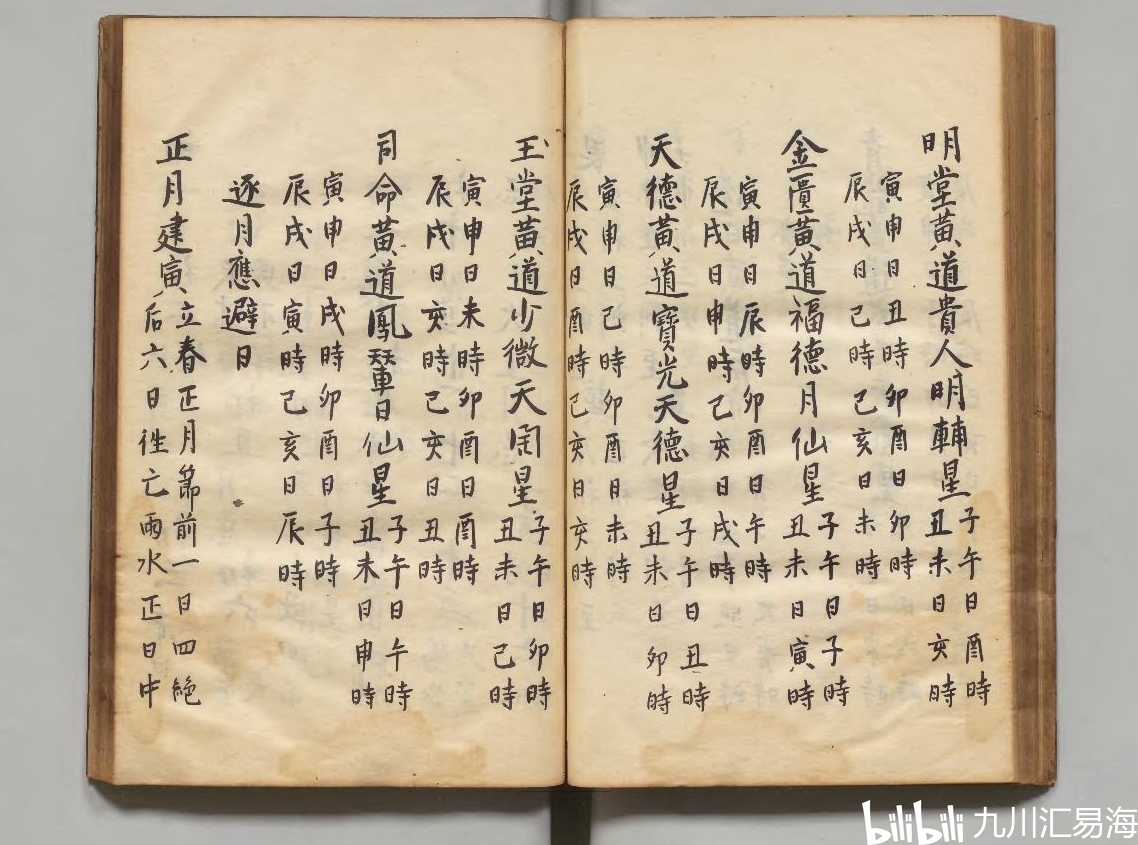 明堂黃道貴人明輔星
子午日酉時
丑未日亥時
寅申日丑時卯酉日卯時
辰戌日己時己亥日未時
金匱黃道福德月仙星
子午日子時
丑未日寅時
寅申日辰時卯酉日午時
辰戌日申時己亥日戌時
天德黃道寶光天德星
子午日丑時
丑未日卯時
寅申日己時卯酉日未時
辰戌日酉時己亥日亥時
玉堂黃道少微天開星
子午日卯時
丑未日己時
寅申日未時卯酉日酉時
辰戌日亥時己亥日丑時
司命黃道鳳輦日仙星
子午日午時
丑未日申時
寅申日戌時卯酉日子時
辰戌日寅時己亥日辰時
逐月應避日
正月建寅
立春正月節前一日四絕
后六日徃亡雨水正日中
bilibili 九川汇易海